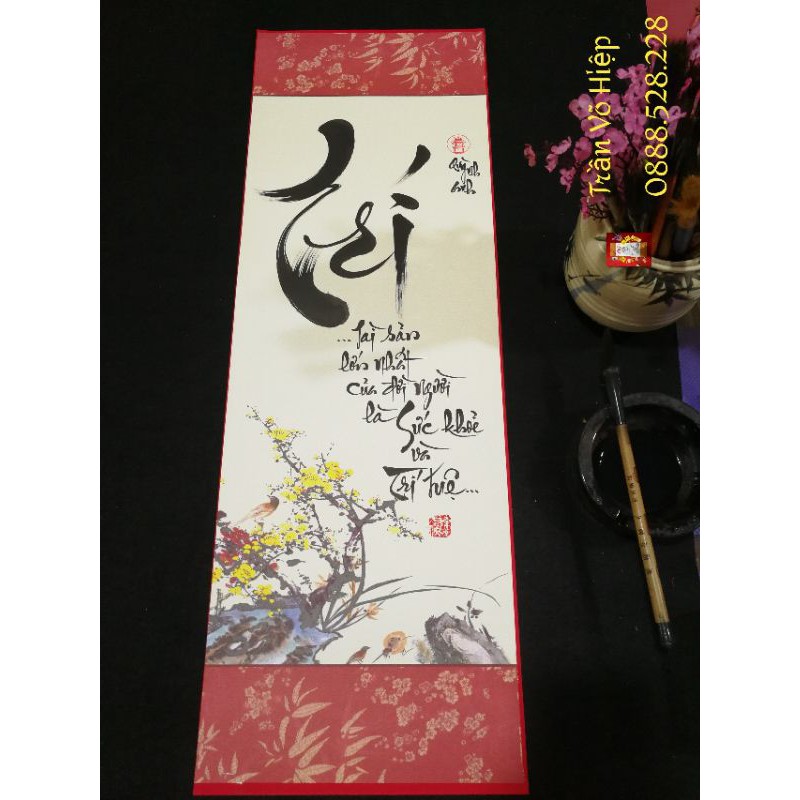 Trí
...tài sản
lớn nhất
của đời người
là Sức khỏe
và
Trí tuệ...
Trần Võ Hiệp
0888.528.228